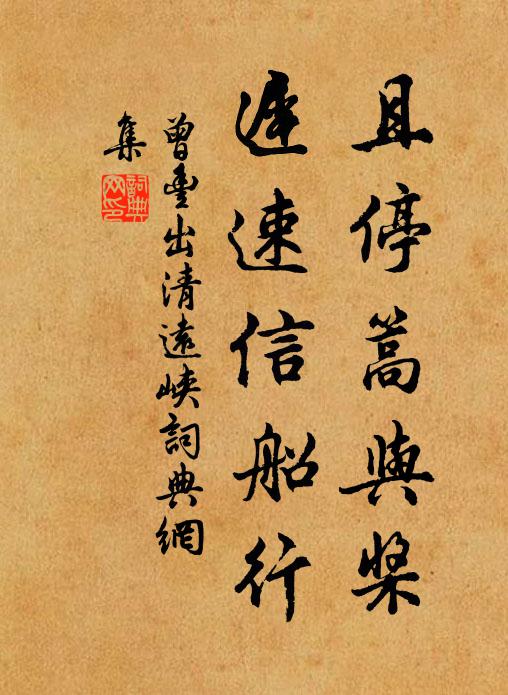 且停篙與槳
遲速信船行
曾豐出清遠峽詞典網
集
詞典
网印